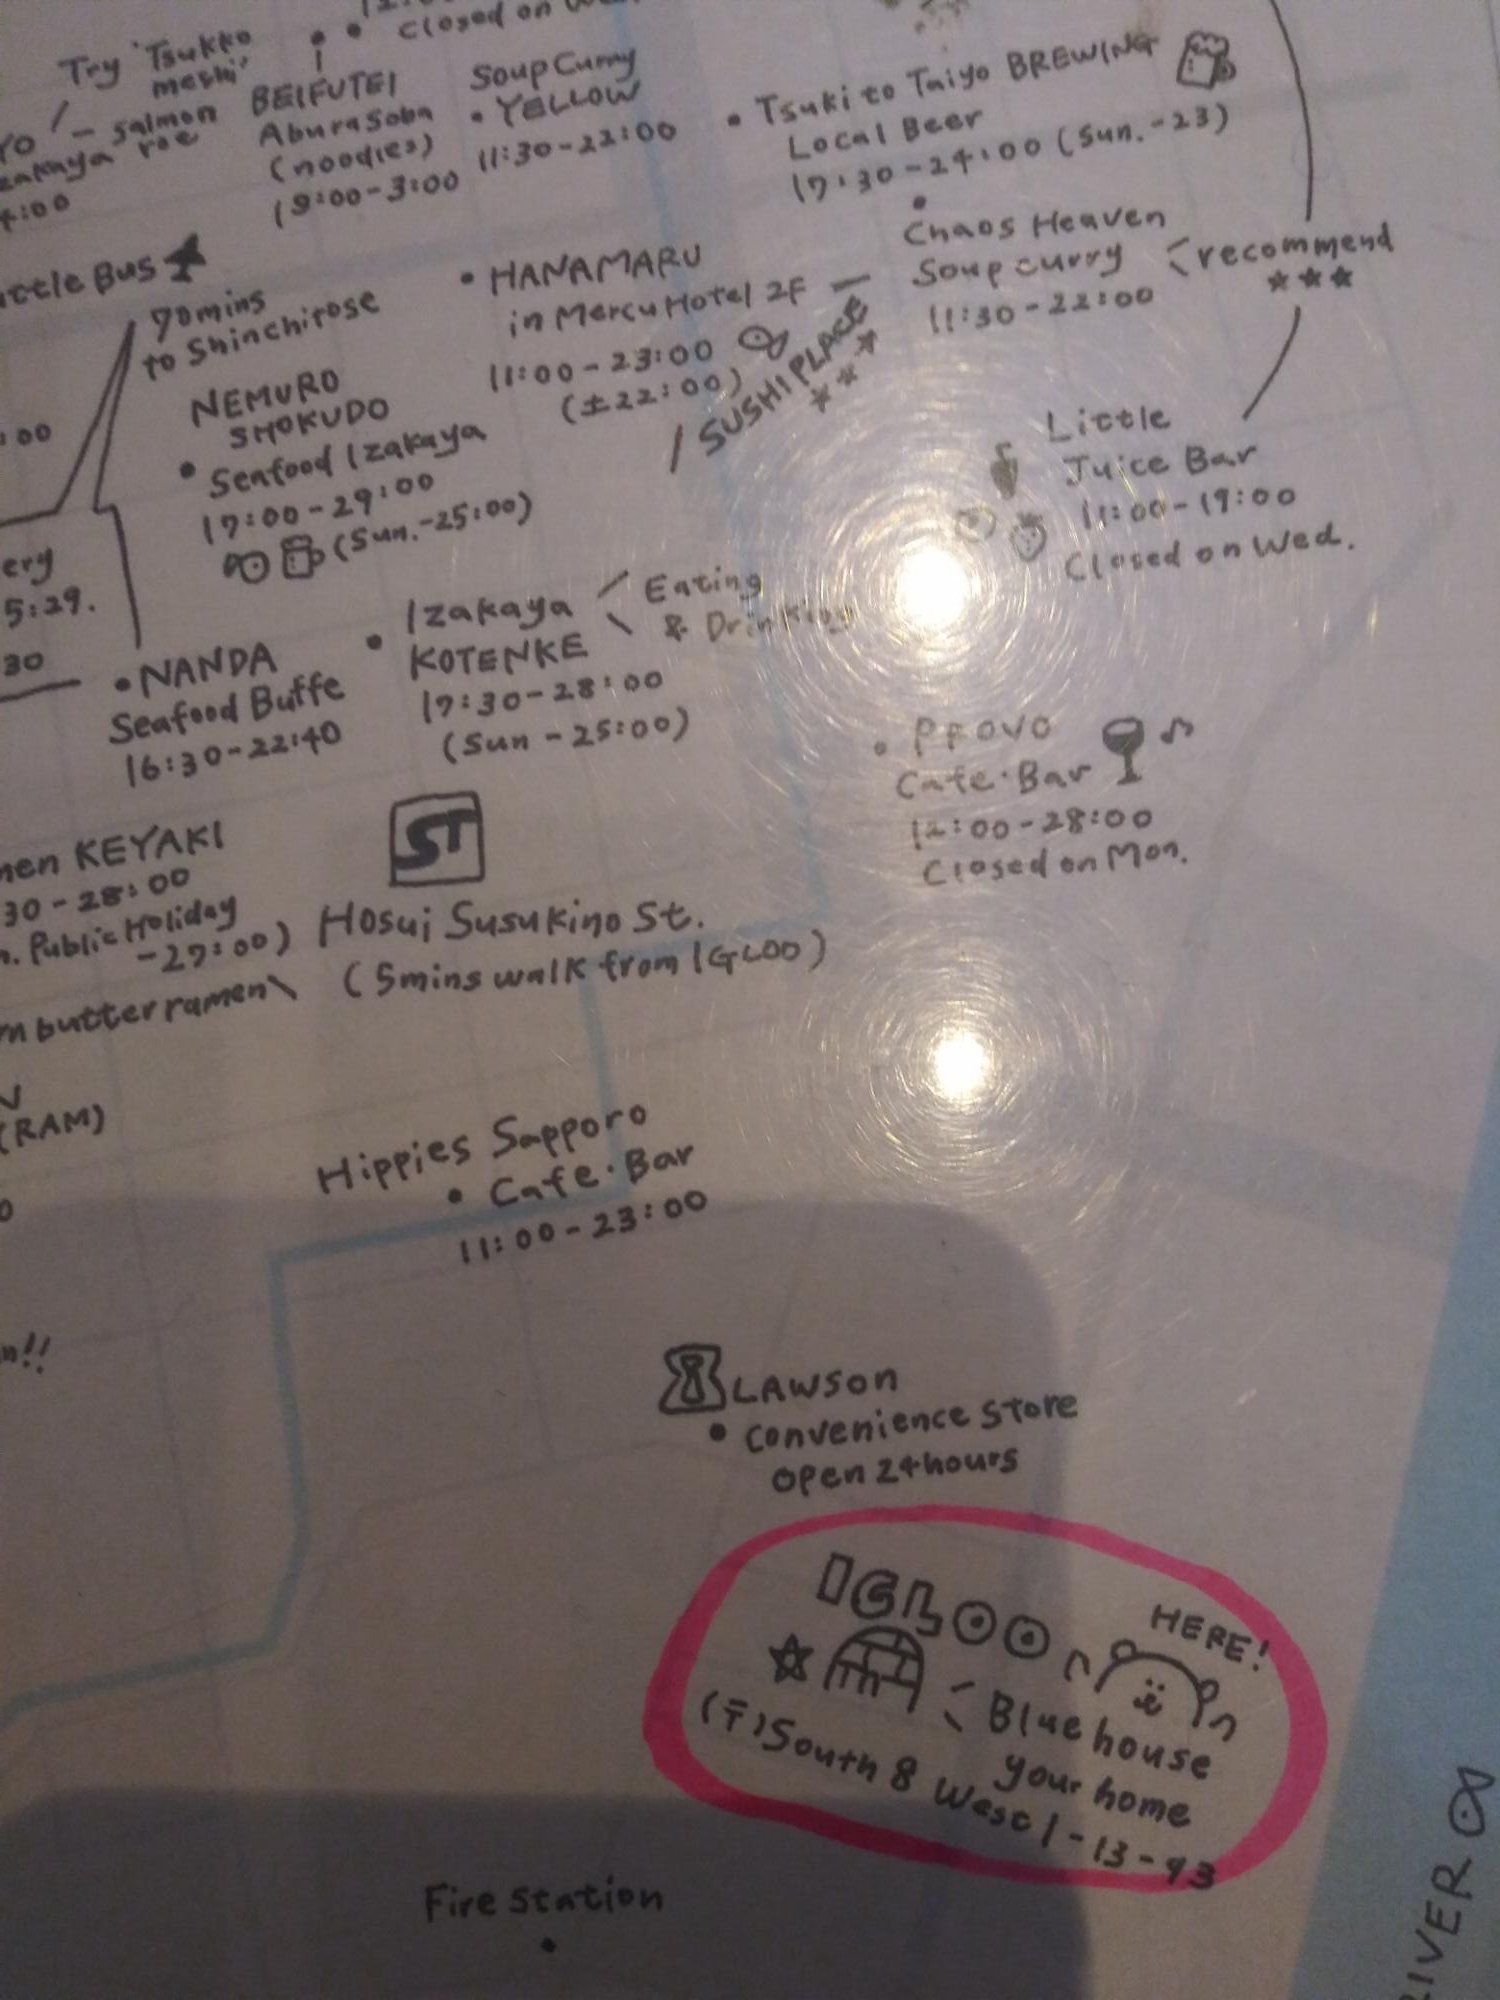 closed on
Try 'Tsukko
meshi'
salmon
roe
4:00
BEIFUTEI
Abura Soba
(noodles)
19:00-3:00
Soup Curry
YELLOW
11:30-22:00
Tsuki to Taiyo BREWING
Local Beer
17:30-24:00 (Sun.-23)
Chaos Heaven
Soup curry
11:30-22:00
recommend
Bus
70mins
to Shinchitose
HANAMARU
in Mercu Hotel 2F
11:00-23:00
(土22:00)
SUSHI PLACE
:00
NEMURO
SHOKUDO
Seafood Izakaya
17:00-29:00
(Sun.-25:00)
Little
Juice Bar
11:00-19:00
Closed on Wed.
ery
5:29.
30
NANDA
Seafood Buffe
16:30-22:40
Izakaya
KOTENKE
Eating
& Drinking
17:30-28:00
(Sun -25:00)
PROVO
Cafe・Bar
12:00-28:00
Closed on Mon.
men KEYAKI
30-28:00
n. Public Holiday
-27:00)
butter ramen
ST
Hosui Susukino St.
(5mins walk from IGLOO)
(RAM)
Hippies Sapporo
Cafe・Bar
11:00-23:00
!!
LAWSON
convenience store
open 24hours
IGLOO
HERE!
Blue house
your home
(〒) South 8 West 1-13-93
Fire Station
RIVER